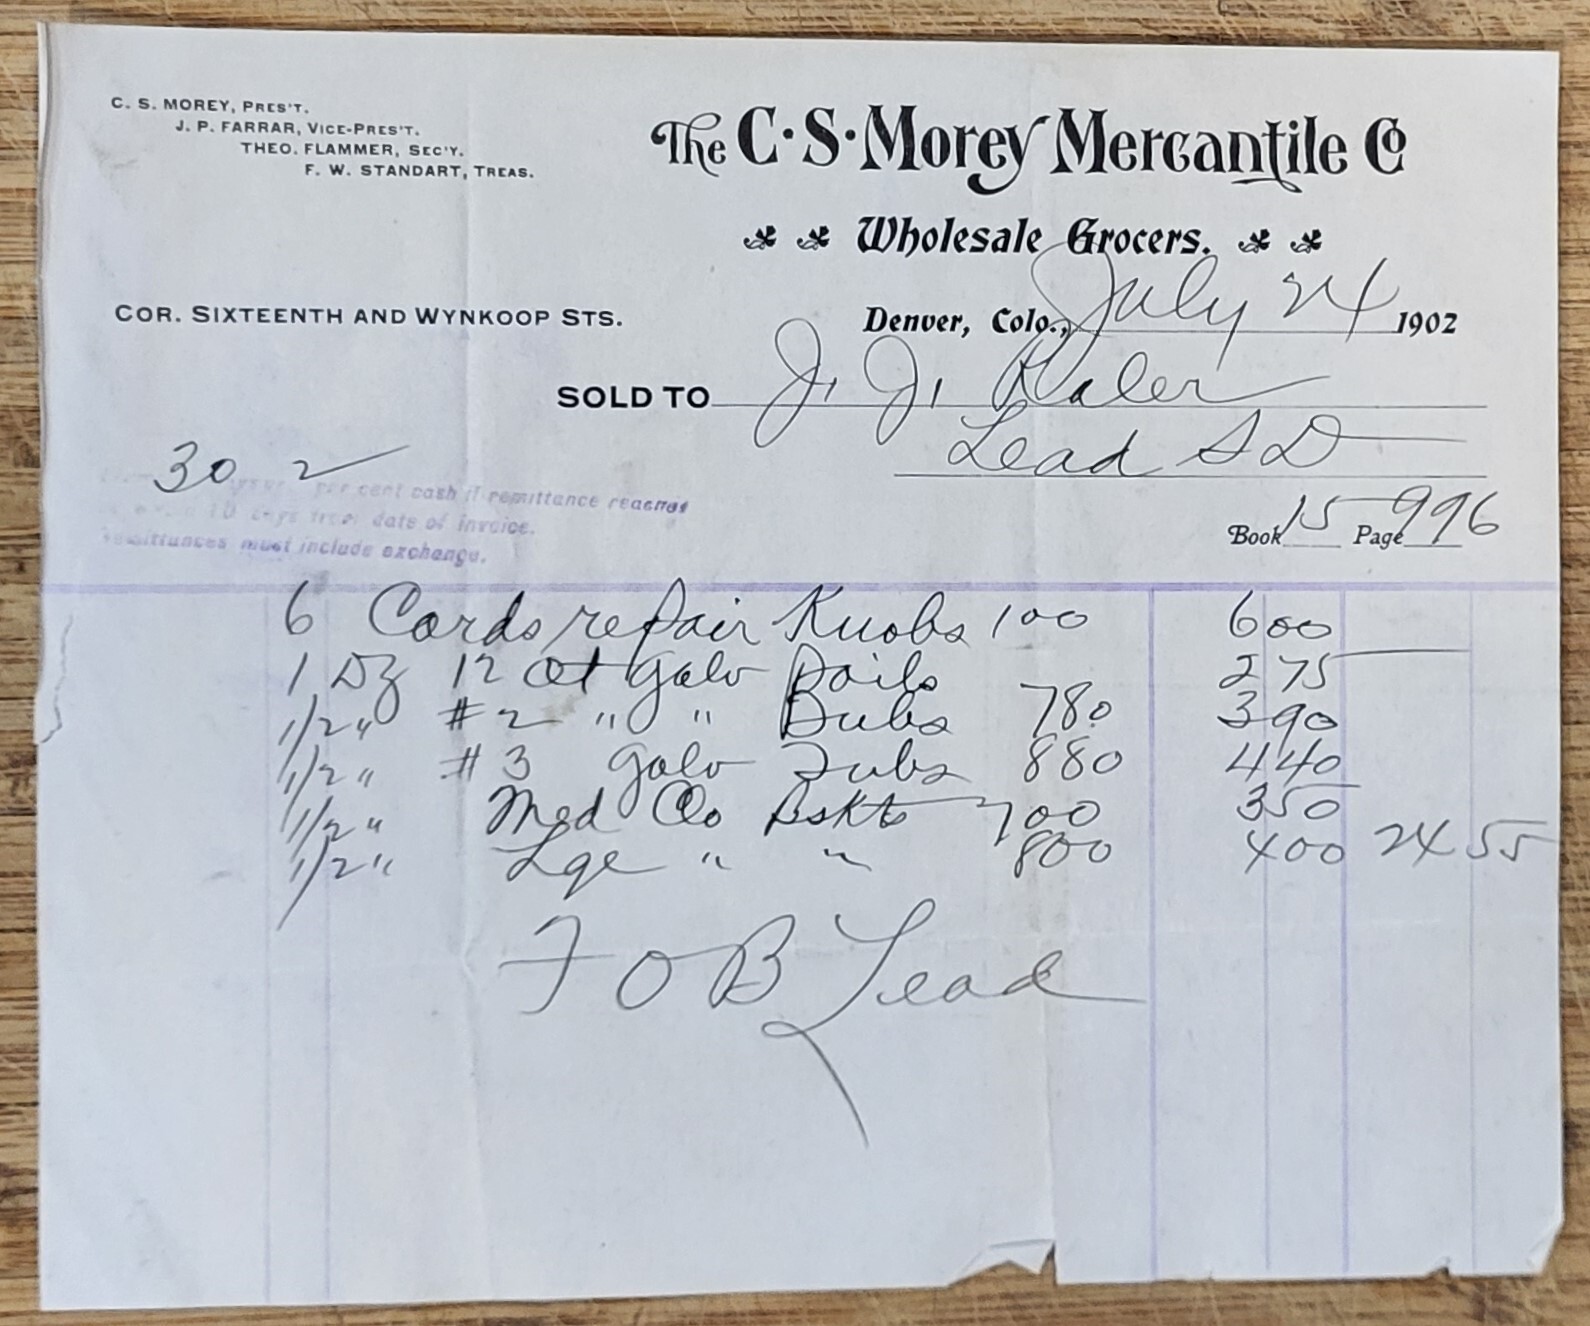 C. S. MOREY, PRES'T.
J. P. FARRAR, VICE-PRES'T.
THEO. FLAMMER, SEC'Y.
F. W. STANDART, TREAS.
The C·S·Morey Mercantile Co
Wholesale Grocers.
COR. SIXTEENTH AND WYNKOOP STS.
Denver, Colo., July 24 1902
SOLD TO J. J. Kaler
Lead S D
30 2
per cent cash if remittance reaches
10 days from date of invoice.
Remittances must include exchange.
Book 15 Page 996
6 Cards repair Knobs 100 600
1 Dz 12 Qt Galv Pails 2 75
1/2 " # 2 " " Tubs 780 390
1/2 " # 3 Galv Tubs 880 440
1/2 " Med Clo Bskts 700 350
1/2 " Lge " " 800 400 24 55
F O B Lead